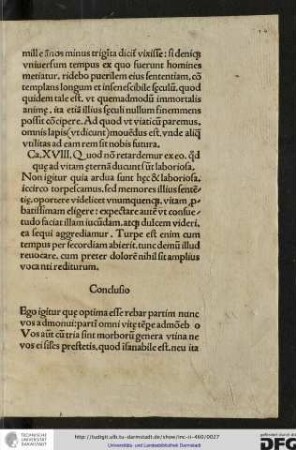 mill e ãnos minus trigĩta dicit᷑ vixisse: si deniq;
vniuersum tempus ex quo fuerunt homines
metiatur, ridebo puerilem eius sententiam, cõ
templans longum et insenescibile sęculũ. quod
quidem tale est. vt quemadmodũ immortalis
animę, ita etiã illius sęculi nullum finem mens
possit cõcipere. Ad quod vt viaticũ paremus,
omnis lapis (vt dicunt) mouẽdus est. vnde aliq̃
vtilitas ad eam rem sit nobis futura.
Ca. XVIII. Quod nõ retardemur ex eo. qđ
que ad vitam ęternã ducunt sũt laboriosa.
Non igitur quia ardua sunt hęc & laboriosa,
iccirco torpescamus, sed memores illius sentẽ-
tię, oportere videlicet vnumquenq; vitam, p-
batissimam eligere: expectare autẽ vt consue-
tudo faciat illam iucũdam, atq; dulcem videri,
ea sequi aggrediamur. Turpe est enim cum
tempus per secordiam abierit. tunc demũ illud
reuocare. cum preter dolorẽ nihil sit amplius
voca nti rediturum.
Conclusio
Ego igitur que optima esse rebar partim nunc
vos admonui: partĩ omni vitę tẽpe admõeb o
Vos aut cũ tria sint morborũ genera vtina ne
vos ei siles prestetis, quod isanabile est. neu ita
TECHNISCHE UNIVERSITÄT DARMSTADT
http://tudigit.ulb.tu-darmstadt.de/show/inc-ii-460/0027
Universitäts- und Landesbibliothek Darmstadt
DFG